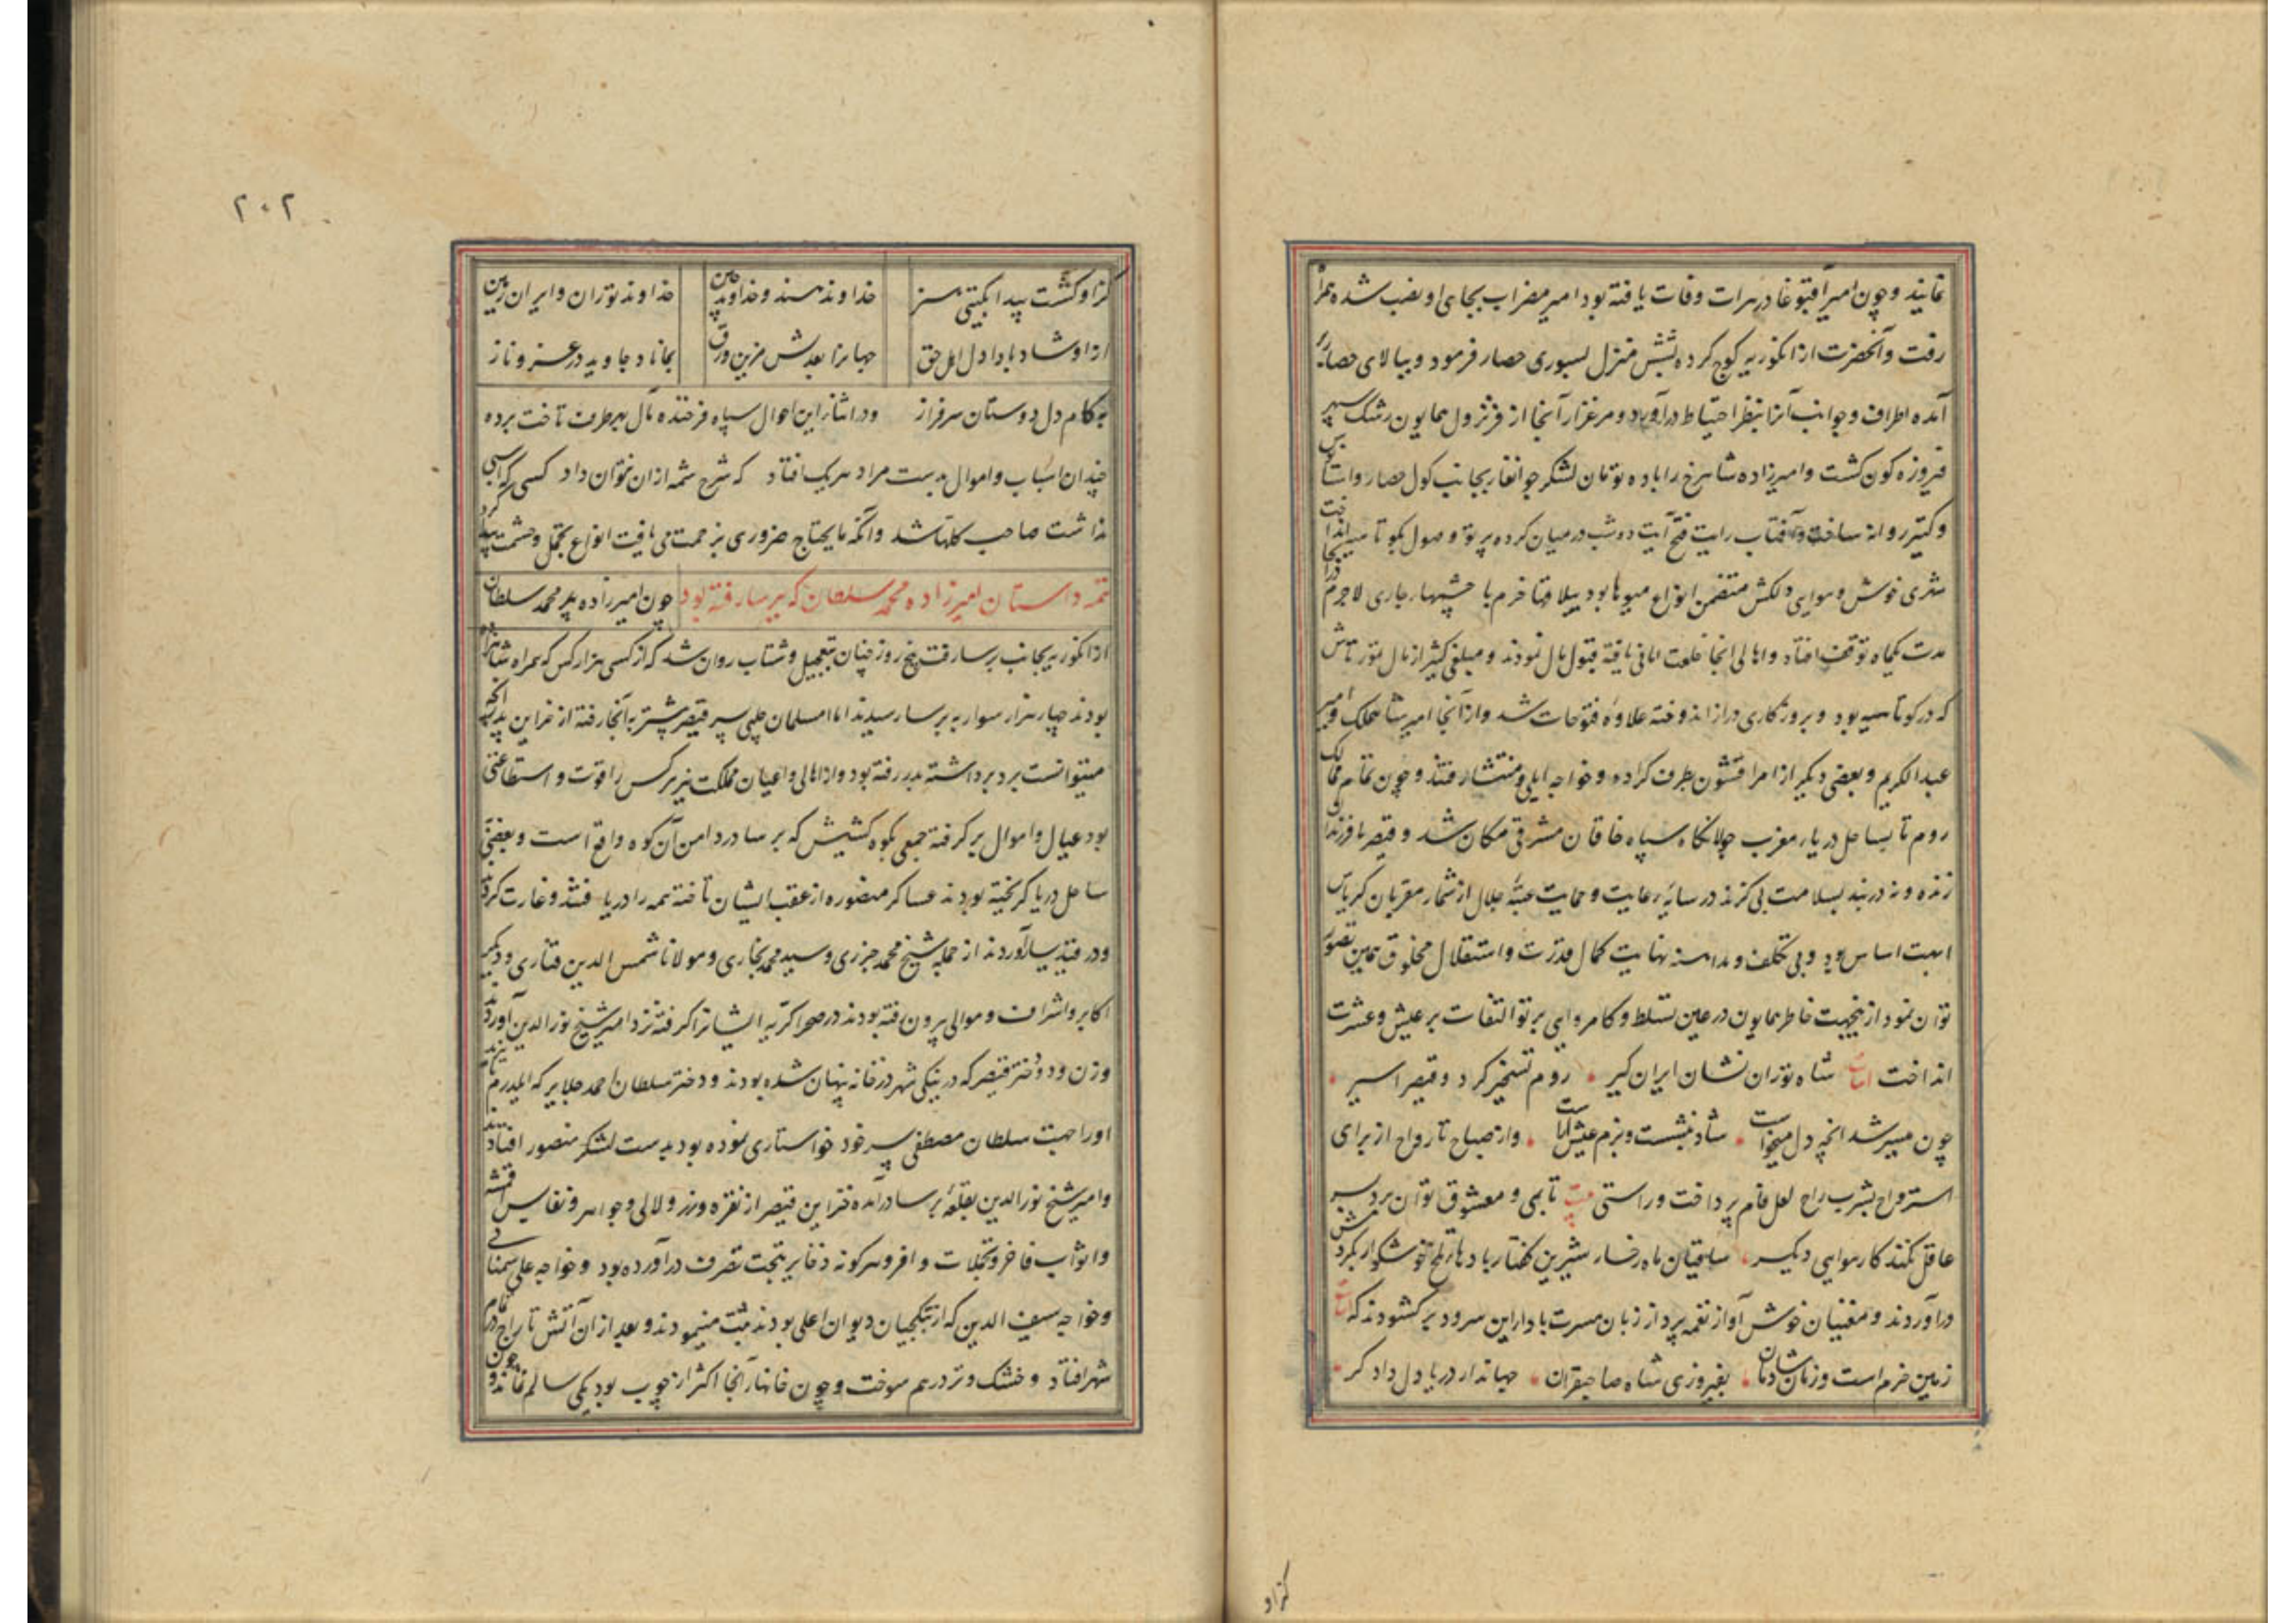 نمایند و چون امیر آقبوغا در هرات وفات یافته بود امیر مضراب بجای او نصب شده
رفت و آنحضرت از انکوریه کوچ کرده بشش منزل بسوری حصار فرمود و ببالای حصار
آمده اطراف و جوانب آنرا بنظر احتیاط درآورد و مرغزار آنجا از فر نزول همایون رشک سپهر
فیروزه کون کشت و امیرزاده شاهرخ را با ده تومان لشکر جوانغار بجانب کول حصار و
و کتیر روانه ساخت و آفتاب رایت فتح آیت دو شب در میان کرده پرتو وصول بکوتاهیه انداخت
شهری خوش و هوایی دلکش متضمن انواع میوها بود ییلاقها خرم با چشمهار جاری لاجرم در آنجا
مدت یکماه توقف افتاد و اهالی آنجا خلعت امانی یافته قبول مال نمودند و مبلغی کثیر از مال تمورتاش
که در کوتاهیه بود و بروزکاری دراز اندوخته علاوه فتوحات شد و از آنجا امیر شاهملک و امیر
عبدالکریم و بعضی دیکر از امرا قشون بطرف کراده و خواجه ایلی و منتشا رفتند و چون تمام ممالک
روم تا بساحل دریار مغرب جولانکاه سپاه خاقان مشرق مکان شد و قیصر با فرزندان
زنده و نه در بند بسلامت بی کزند در سایهٔ رعایت و حمایت عتبهٔ جلال از شمار مقربان کریاس
ابهت اساس بود و بی تکلف و مداهنه نهایت کمال قدرت و استقلال مخلوق همین تصور
توان نمود ازینجهت خاطر همایون در عین تسلط و کامروایی پرتو التفات بر عیش و عشرت
انداخت ابیات شاه توران نشان ایران کیر روم تسخیر کرد و قیصر اسیر
چون میسر شد انچه دل میخواست شاد بنشست و بزم عیش آراست و از صباح تا رواح از برای
استرواح بشرب راح لعل فام پرداخت و راستی بیت تا بمی و معشوق توان برد بسر
عاقل نکند کار هوایی دیکر ساقیان ماه رخسار شیرین کفتار بادهار تلخ خوشکوار بکردش
درآوردند و مغنیان خوش آواز نغمه پرداز زبان مسرت بادا این سرود برکشودند که ابیات
زمین خرم است و زمان شادمان بفیروزی شاه صاحبقران جهاندار دریا دل دادکر
کزاو
۲۰۲
کزاو کشت پیدا بکیتی هنر خداوند هند و خداوند چین خداوند توران و ایران زمین
ازاو شاد بادا دل اهل حق جهانرا بعدلش مزین ورق بماناد جاوید در عز و ناز
به کام دل دوستان سرفراز و در اثنار این احوال سپاه فرخنده مآل بهر طرف تاخت برده
چندان اسباب و اموال بدست مراد هریک افتاد که شرح شمه ازان نتوان داد کسی که اسبی
نداشت صاحب کلها شد و آنکه مایحتاج ضروری بزحمت می یافت انواع تجمل و حشمت پیدا کرد
تتمه داستان امیرزاده محمد سلطان که ببرسا رفته بود چون امیرزاده محمد سلطان
از انکوریه بجانب برسا رفت پنج روز چنان بتعجیل و شتاب روان شد که از کسی هزار کس که همراه شاهزاده
بودند چهار هزار سوار به برسا رسیدند اما امسلمان چلپی پسر قیصر پیشتر به آنجا رفته از خزاین پدر آنچه
میتوانست برد برداشته بدر رفته بود و از اهالی و اعیان مملکت نیز هرکس را قوت و استطاعتی
بود عیال و اموال بر کرفته جمعی بکوه کشیش که برسا در دامن آن کوه واقع است و بعضی
ساحل دریا کریخته بودند عساکر منصوره از عقب ایشان تاخته همه را دریافتند و غارت کرده
و در قید یسار آوردند از جمله شیخ محمد جزری و سید محمد بخاری و مولانا شمس الدین فناری و دیکر
اکابر و اشراف و موالی بیرون رفته بودند در صحرا کرته ایشانرا کرفته نزد امیر شیخ نورالدین آوردند
و زن و دو دختر قیصر که در ینکی شهر در خانه پنهان شده بودند و دختر سلطان احمد جلایر که ایلدرم بایزید
اورا جهت سلطان مصطفی پسر خود خواستاری نموده بود بدست لشکر منصور افتادند
و امیر شیخ نورالدین بقلعهٔ برسا درآمده خزاین قیصر از نقره و زر و لالی و جواهر و نفایس اقمشه
و اثواب فاخر و تجملات وافر و هرکونه ذخایر بتحت تصرف درآورده بود و خواجه علی سمنانی
و خواجه سیف الدین که از بتکجیان دیوان اعلی بودند ثبت مینمودند و بعد ازان آتش تاراج در تمام
شهر افتاد و خشک و تر درهم سوخت و چون خانهار آنجا اکثر از چوب بود یکی سالم نماند و چون